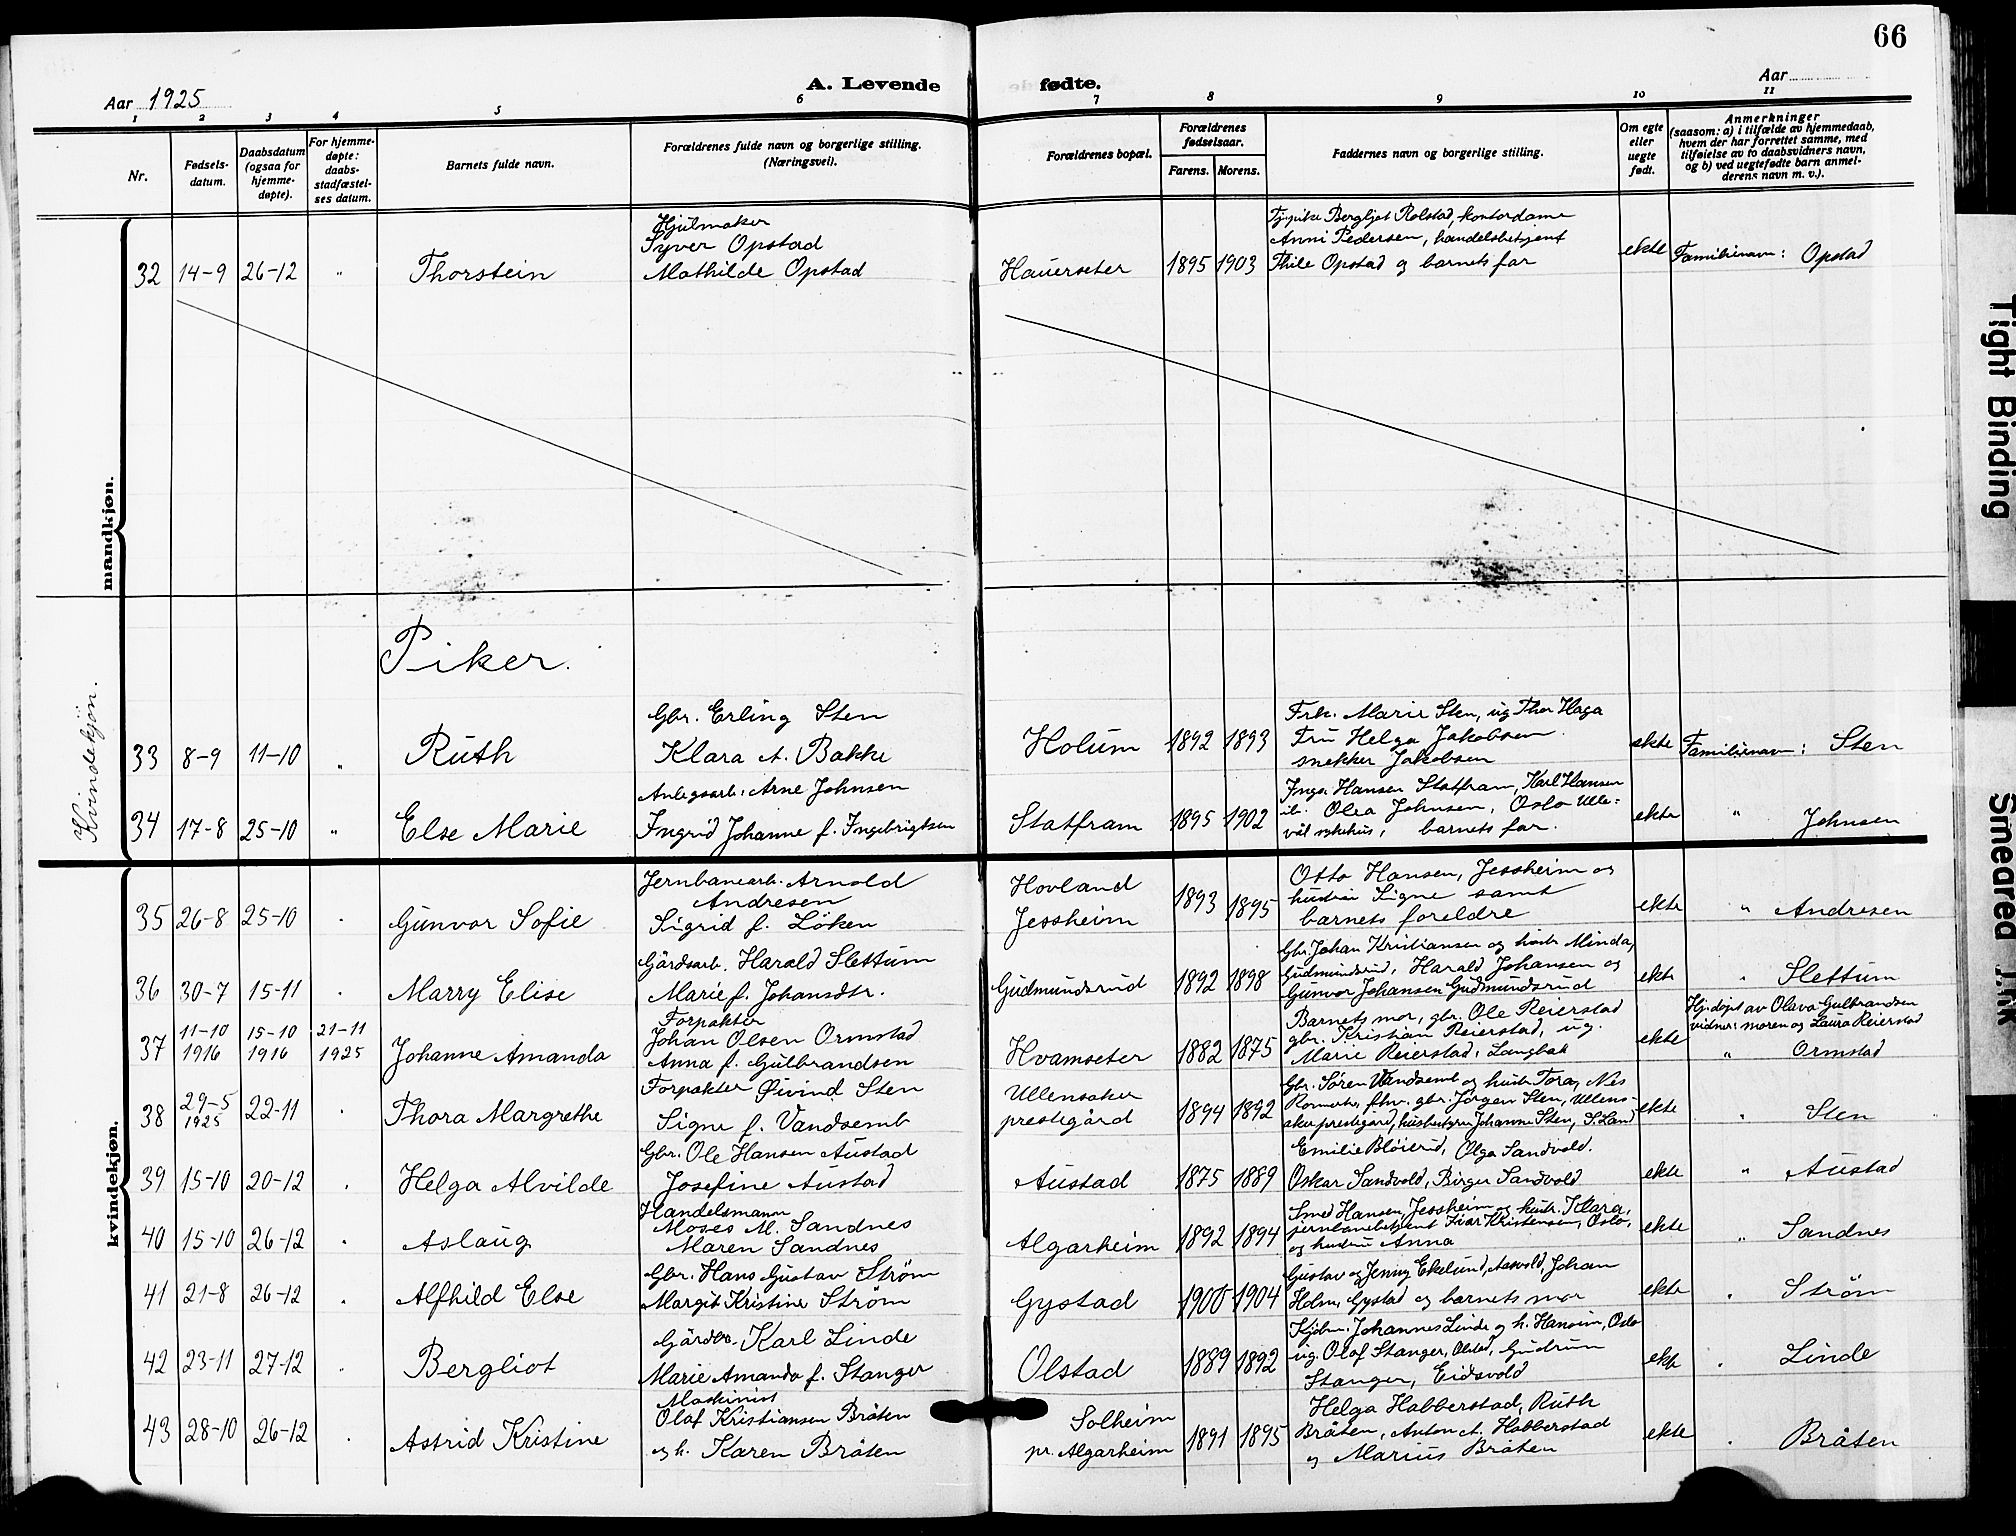 66
Aar 1925
A. Levende fødte.
Aar
1 2 3 4 5 6 7 8 9 10 11
Nr.
Fødsels-
datum.
Daabsdatum
(ogsaa for
hjemme-
døpte).
For hjemme-
døpte:
daabs-
stadfæstel-
ses datum.
Barnets fulde navn.
Forældrenes fulde navn og borgerlige stilling.
(Næringsvei).
Forældrenes bopæl.
Forældrenes
fødselsaar.
Farens. Morens.
Faddernes navn og borgerlige stilling.
Om egte
eller
uegte
født.
Anmerkninger
(saasom: a) i tilfælde av hjemmedaab,
hvem der har forrettet samme, med
tilføielse av to daabsvidners navn,
og b) ved uegtefødte barn anmel-
derens navn m. v.).
mandkjøn.
Hjulmaker
Syver Opstad
32 14-9 26-12 " Thorstein Mathilde Opstad
Hauerseter 1895 1903
Bergljot Rolstad, kontordame
Anni Pedersen, handelsbetjent
Thile Opstad og barnets far
ekte Familienavn: Opstad
Piker.
Kvindekjön.
Gbr. Erling Sten
33 8-9 11-10 " Ruth Klara A. Bakke
Holum 1892 1893
Frk. Marie Sten, ug Thor Haga
Fru Helga Jakobsen
snekker Jakobsen
ekte Familienavn: Sten
Anlegsarb. Arne Johnsen
34 17-8 25-10 " Else Marie Ingrid Johanne f. Ingebrigtsen
Statfram 1895 1902
Inga Hansen Statfram, Karl Hansen
ib. Olea Johnsen, Oslo Ulle-
vål sykehus, barnets far.
ekte " Johnsen
kvindekjøn.
Jernbanearb. Arnold
Andresen
35 26-8 25-10 " Gunvor Sofie Sigrid f. Löken
Hovland
Jessheim 1893 1895
Otto Hansen, Jessheim og
hustru Signe samt
barnets foreldre
ekte " Andresen
Gårdsarb. Harald Slettum
36 30-7 15-11 " Marry Elise Marie f. Johansdtr.
Gudmundsrud 1892 1898
Gbr. Johan Kristiansen og hustr Minda,
Gudmundsrud, Harald Johansen og
Gunvor Johansen Gudmundsrud
ekte " Slettum
Forpakter
37 11-10 1916 15-10 1916 21-11 1925 Johanne Amanda
Johan Olsen Ormstad
Anna f. Gulbrandsen
Hvamseter 1882 1875
Barnets mor, gbr. Ole Reierstad
gbr. Kristian Reierstad, ug.
Marie Reierstad, Langbak
ekte
Hj.døpt av Olava Gulbrandsen
vidner: moren og Laura Reierstad
" Ormstad
Forpakter Øivind Sten
38 29-5 1925 22-11 " Thora Margrethe Signe f. Vandsemb
Ullensaker
prestegård 1894 1892
Gbr. Sören Vandsemb og hustr Tora, Nes
Romerike, fhv. gbr. Jörgen Sten, Ullens-
aker prestegard, husbestyrer Johanne Sten, S. Land
ekte " Sten
Gbr. Ole Hansen Austad
39 15-10 20-12 " Helga Alvilde Josefine Austad
Austad 1875 1889
Emilie Bløierud, Olga Sandvold.
Oskar Sandvold, Birger Sandvold
ekte " Austad
Handelsmann
Moses M. Sandnes
40 15-10 26-12 " Aslaug Maren Sandnes
Algarheim 1892 1894
Smed Hansen, Jessheim og hustr. Klara,
jernbanebetjent Ivar Kristensen, Oslo,
og hustru Anna
ekte " Sandnes
Gbr. Hans Gustav Strøm
41 21-8 26-12 " Alfhild Else Margit Kristine Strøm
Gystad 1900 1904
Gustav og Jenny Ekelund, Aasvold, Johan
Holm, Gystad og barnets mor
ekte " Ström
Gårdbr. Karl Linde
42 23-11 27-12 " Bergliot Marie Amanda f. Stanger
Olstad 1889 1892
Kjøbm. Johannes Linde og h. Hansine, Oslo
ug. Olaf Stanger, Olstad, Gudrun
Stanger, Eidsvold
ekte " Linde
Maskinist
Olaf Kristiansen Bråten
43 28-10 26-12 " Astrid Kristine og h. Karen Bråten
Solheim
pr. Algarheim 1891 1895
Helga Habberstad, Ruth
Bråten, Anton A. Habberstad
og Marius Bråten
ekte " Bråten
Tight Binding
Smeared Ink